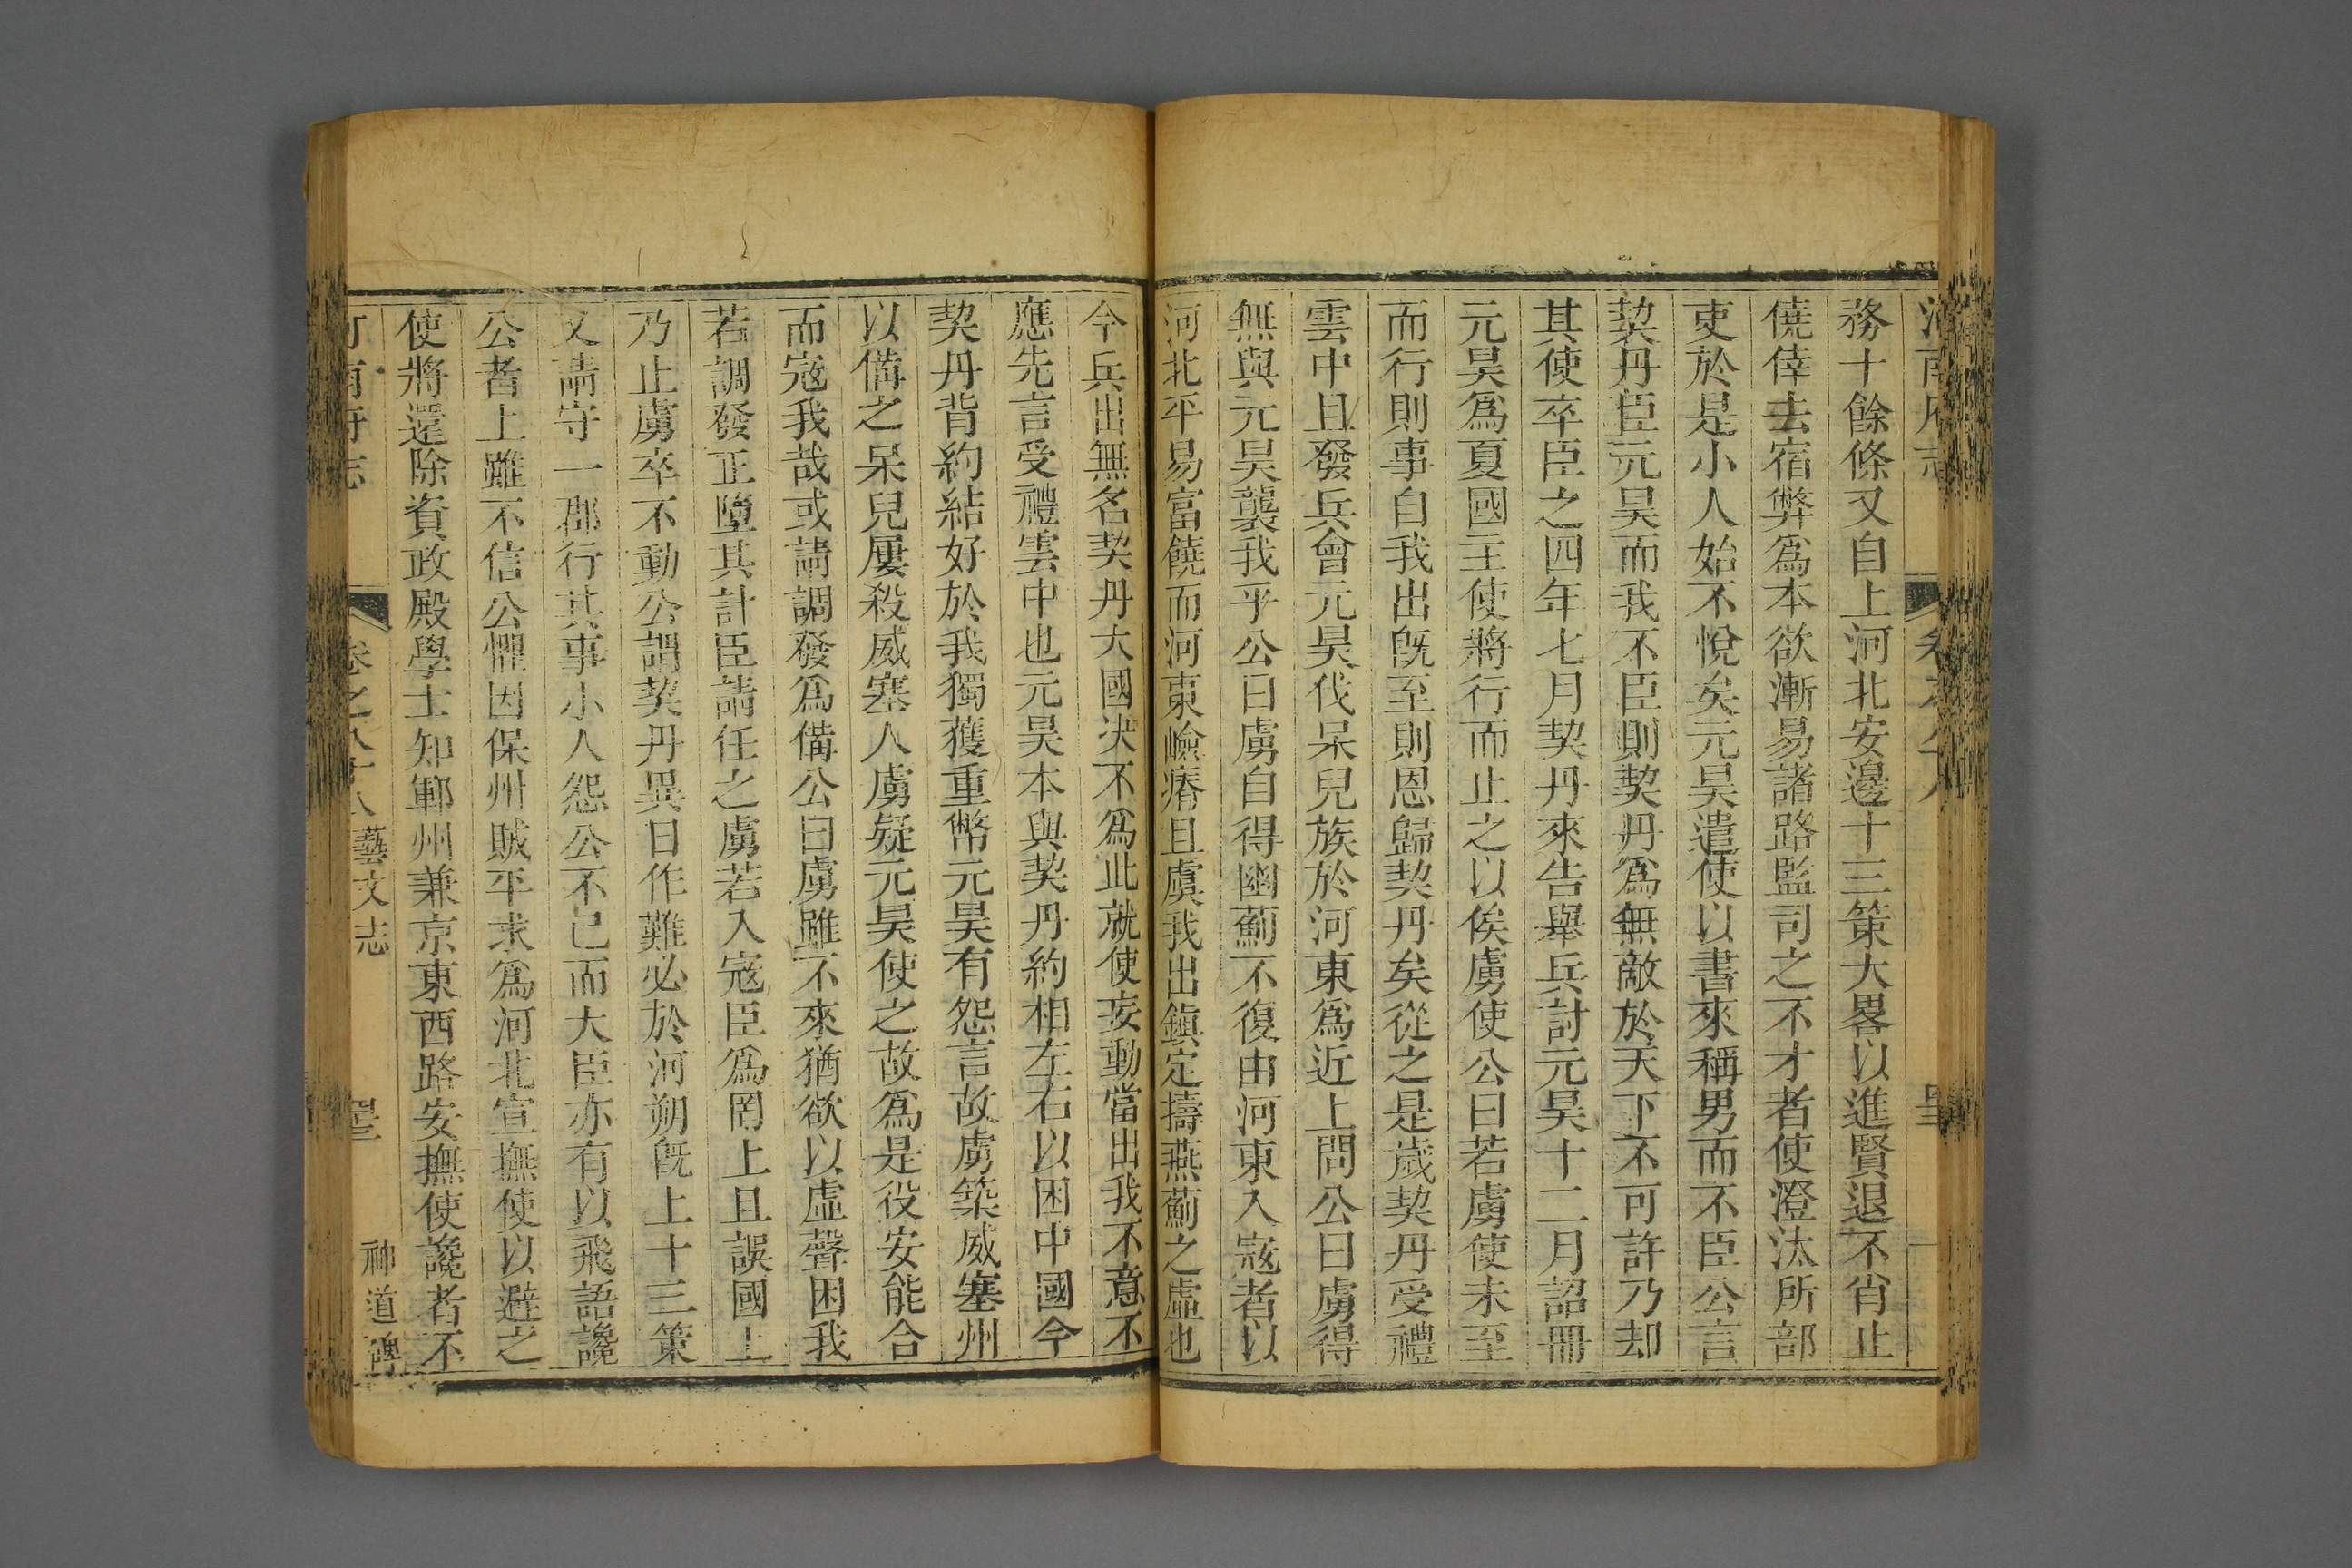 務十餘條又自上河北安邊十三策大畧以進賢退不肖止
僥倖去宿弊爲本欲漸易諸路監司之不才者使澄汰所部
吏於是小人始不悅矣元昊遣使以書來稱男而不臣公言
契丹臣元昊而我不臣則契丹爲無敵於天下不可許乃却
其使卒臣之四年七月契丹來告舉兵討元昊十二月詔冊
元昊爲夏國主使將行而止之以俟虜使公曰若虜使未至
而行則事自我出既至則恩歸契丹矣從之是歲契丹受禮
雲中且發兵會元昊伐呆兒族於河東爲近上問公曰虜得
無與元昊襲我乎公曰虜自得幽薊不復由河東入寇者以
河北平易富饒而河東嶮瘠且虞我出鎮定擣燕薊之虛也
今兵出無名契丹大國决不爲此就使妄動當出我不意不
應先言受禮雲中也元昊本與契丹約相左右以困中國今
契丹背約結好於我獨獲重幣元昊有怨言故虜築威塞州
以備之呆兒屢殺威塞人虜疑元昊使之故爲是役安能合
而寇我哉或請調發爲備公曰虜雖不來猶欲以虛聲困我
若調發正墮其計臣請任之虜若入寇臣爲罔上且誤國上
乃止虜卒不動公謂契丹異日作難必於河朔既上十三策
又請守一郡行其事小人怨公不已而大臣亦有以飛語讒
公者上雖不信公懼因保州賊平求爲河北宣撫使以避之
使將還除資政殿學士知鄆州兼京東西路安撫使讒者不
河南府志
卷之八十八
藝文志
神道碑